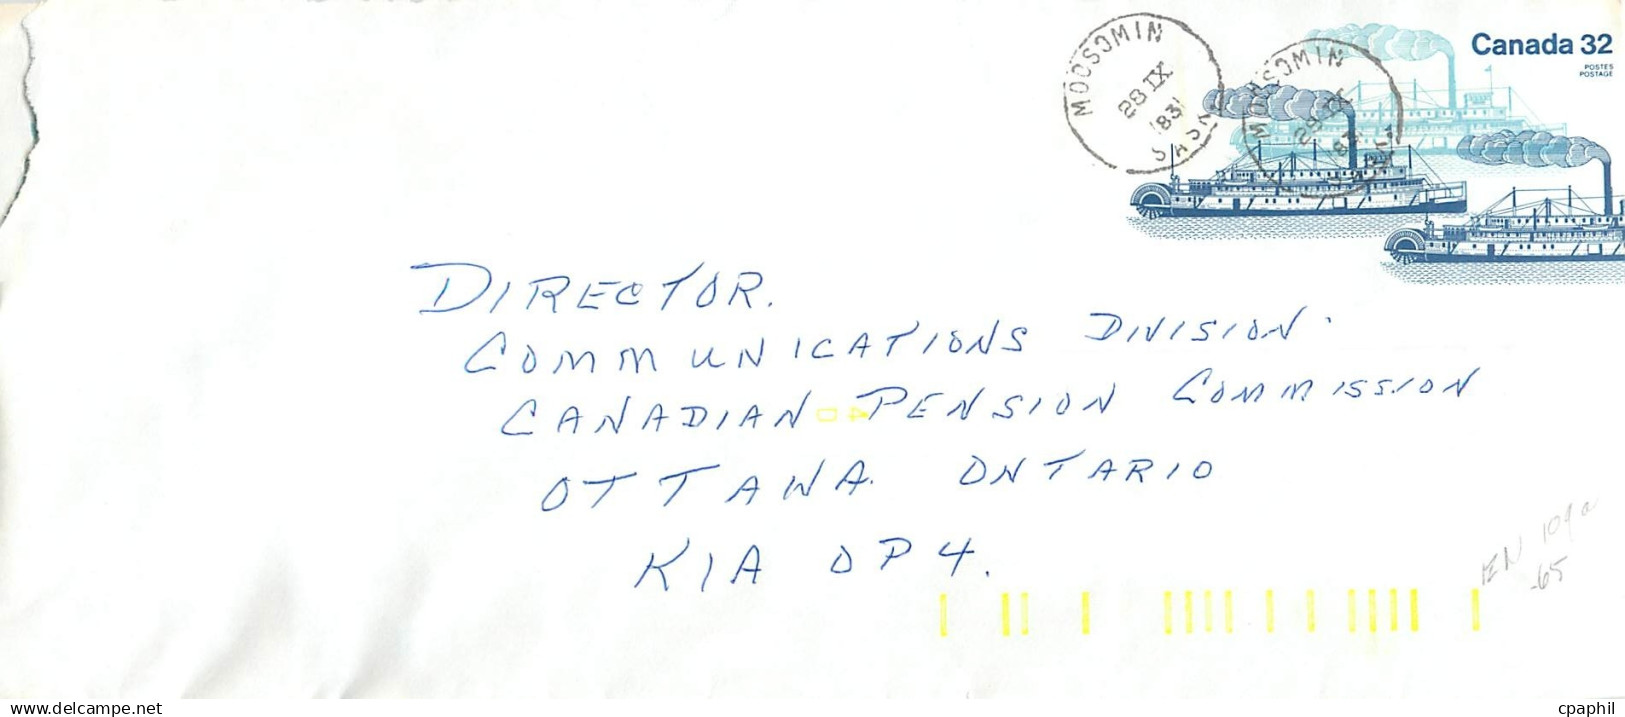 Canada 32
POSTES
POSTAGE
MOOSOMIN
28 IX
83
SASK
MOOSOMIN
DIRECTOR.
COMMUNICATIONS DIVISION.
CANADIAN PENSION COMMISSION
4
D
OTTAWA. ONTARIO
K1A 0P4.
EN 109a
-65
cpaphil